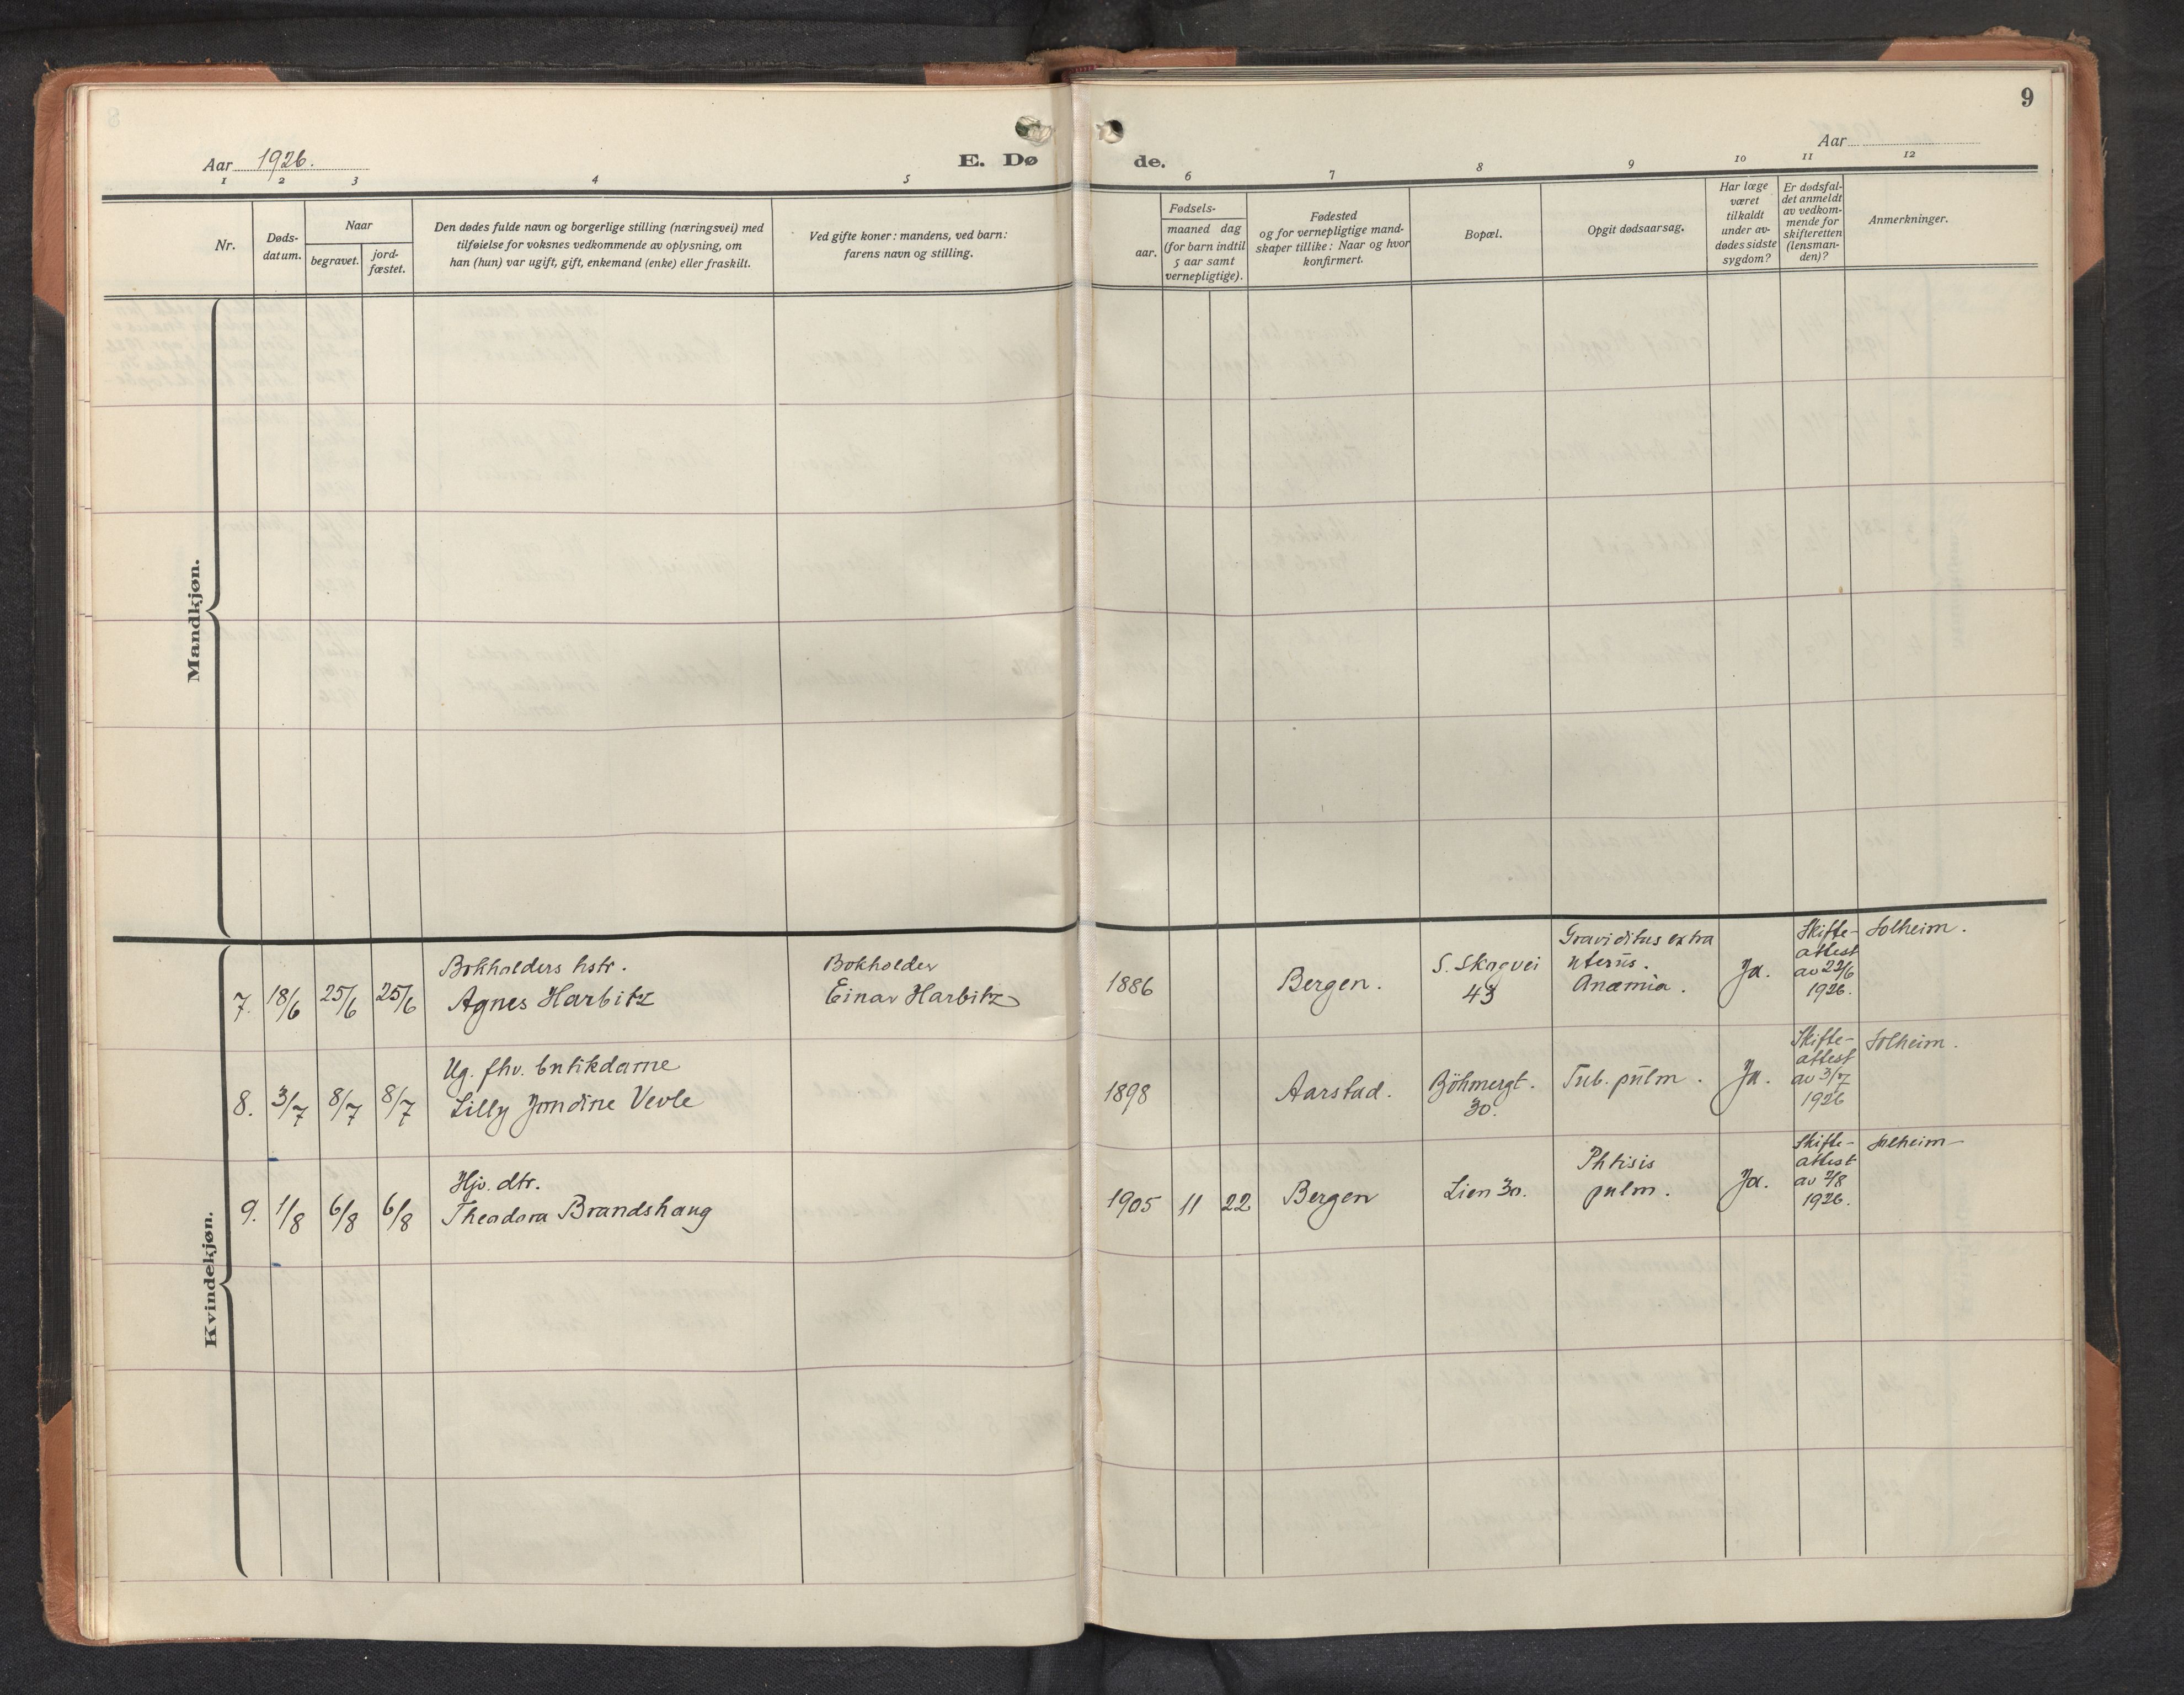 9
Aar 1926.
E. Døde.
Aar
1 2 3 4 5 6 7 8 9 10 11 12
Nr.
Døds-
datum.
Naar
begravet.
jord-
fæstet.
Den dødes fulde navn og borgerlige stilling (næringsvei) med
tilføielse for voksnes vedkommende av oplysning, om
han (hun) var ugift, gift, enkemand (enke) eller fraskilt.
Ved gifte koner: mandens, ved barn:
farens navn og stilling.
Fødsels-
aar.
maaned dag
(for barn indtil
5 aar samt
vernepligtige).
Fødested
og for vernepligtige mand-
skaper tillike: Naar og hvor
konfirmert.
Bopæl.
Opgit dødsaarsag.
Har læge
været
tilkaldt
under av-
dødes sidste
sygdom?
Er dødsfal-
det anmeldt
av vedkom-
mende for
skifteretten
(lensman-
den)?
Anmerkninger.
Mandkjøn.
Kvindekjøn.
7.
18/6
25/6
25/6
Bokholders hstr.
Agnes Harbitz
Bokholder
Einar Harbitz
1886
Bergen.
S. Skogvei
43
Graviditas extra
uterus.
Anæmia.
Ja.
Skifte-
attest
av 22/6
1926.
Solheim.
8.
3/7
8/7
8/7
Ug. fhv. butikdame
Lilly Jondine Vevle
1898
Aarstad.
Böhmergt.
30.
Tub. pulm.
Ja.
Skifte-
attest
av 3/7
1926
Solheim.
9.
1/8
6/8
6/8
Hjv. dtr.
Theodora Brandshaug
1905
11
22
Bergen
Lien 30.
Phtisis
pulm.
Ja.
Skifte-
attest
av 7/8
1926.
Solheim